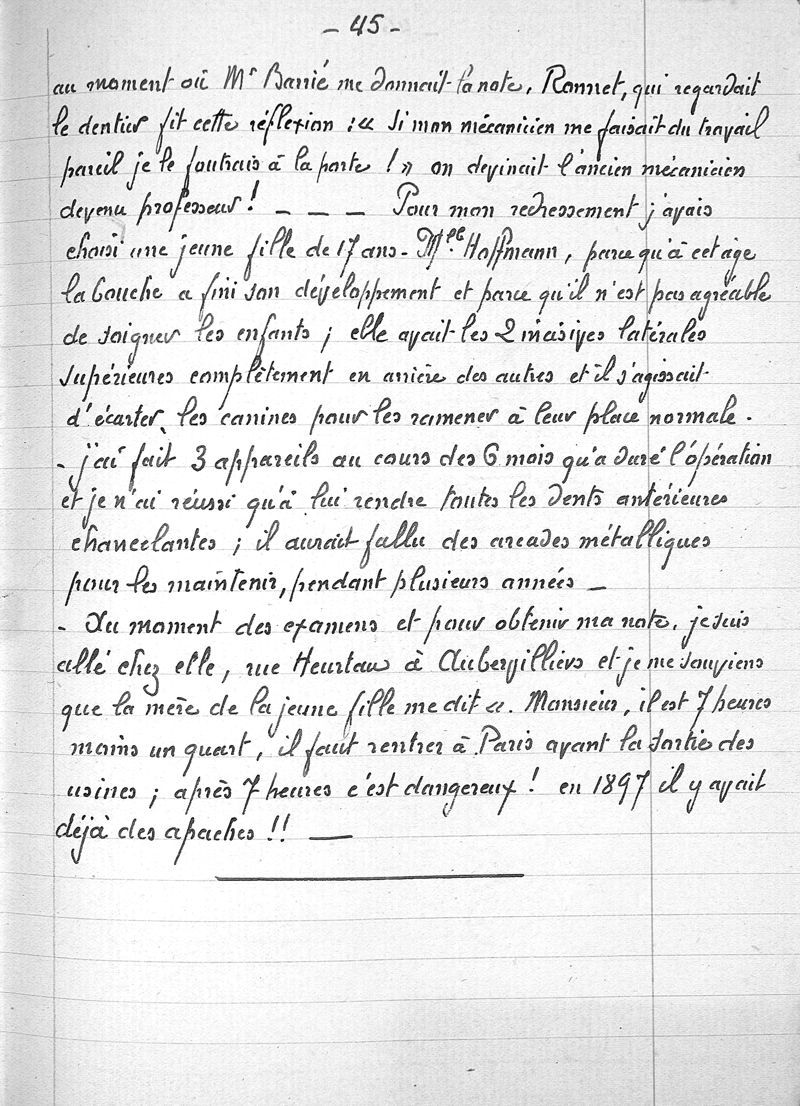 - 45 -
au moment où Mr Barrié me donnait la note, Ronnet, qui regardait
le dentier fit cette réflexion : « Si mon mécanicien me faisait du travail
pareil je le foutrais à la porte ! » on devinait l'ancien mécanicien
devenu professeur ! _ _ _ Pour mon redressement j'avais
choisi une jeune fille de 17 ans - Mlle Hoffmann, parce qu'à cet âge
la bouche a fini son développement et parce qu'il n'est pas agréable
de soigner les enfants ; elle avait les 2 incisives latérales
supérieures complètement en arrière des autres et il s'agissait
d'écarter les canines pour les ramener à leur place normale.
- j'ai fait 3 appareils au cours des 6 mois qu'a duré l'opération
et je n'ai réussi qu'à lui rendre toutes les dents antérieures
chancelantes ; il aurait fallu des arcades métalliques
pour les maintenir, pendant plusieurs années _
- Au moment des examens et pour obtenir ma note, je suis
allé chez elle, rue Heurtau à Aubervilliers et je me souviens
que la mère de la jeune fille me dit «. Monsieur, il est 7 heures
moins un quart, il faut rentrer à Paris avant la sortie des
usines ; après 7 heures c'est dangereux ! en 1897 il y avait
déjà des apaches !! _